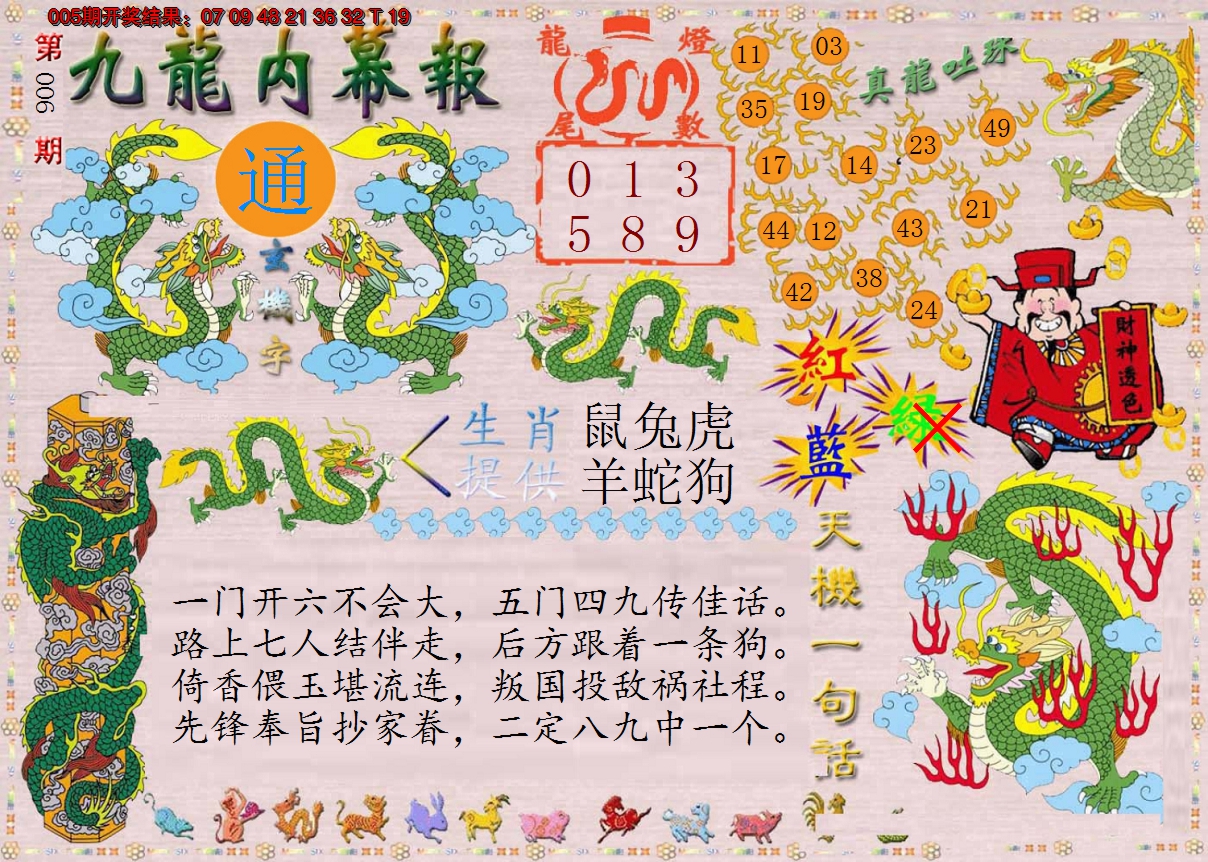 005期开奖结果：07 09 48 21 36 32 T 19
第
006
期
九龍内幕報
通
玄
機
字
龍
燈
尾
數
0 1 3
5 8 9
真龍吐珠
11
03
35
19
49
23
17
14
21
44
12
43
38
42
24
紅
綠
藍
財神透色
生肖
提供
鼠兔虎
羊蛇狗
天機一句話
一门开六不会大，五门四九传佳话。
路上七人结伴走，后方跟着一条狗。
倚香偎玉堪流连，叛国投敌祸社程。
先锋奉旨抄家眷，二定八九中一个。